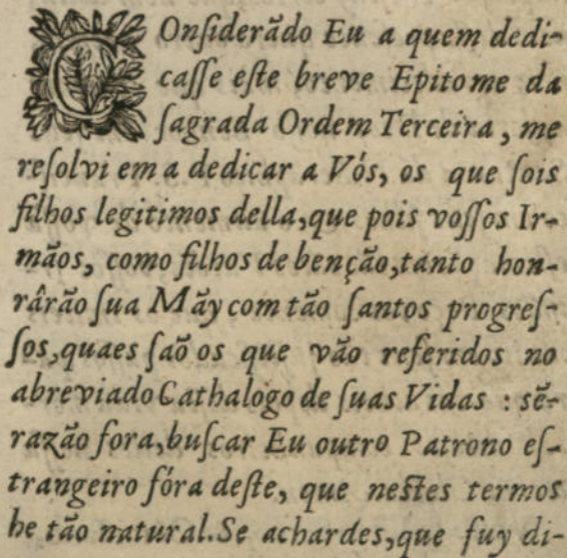 COnſiderãdo Eu a quem dedi-
caſſe eſte breve Epitome da
ſagrada Ordem Terceira, me
reſolvi em a dedicar a Vós, os que ſois
filhos legitimos della, que pois voſſos Ir-
mãos, como filhos de benção, tanto hon-
rârão ſua Mãy com tão ſantos progreſ-
ſos, quaes ſaõ os que vão referidos no
abreviado Cathalogo de ſuas Vidas : sẽ-
razão fora, buſcar Eu outro Patrono eſ-
trangeiro fóra deſte, que neſtes termos
he tão natural. Se achardes, que fuy di-